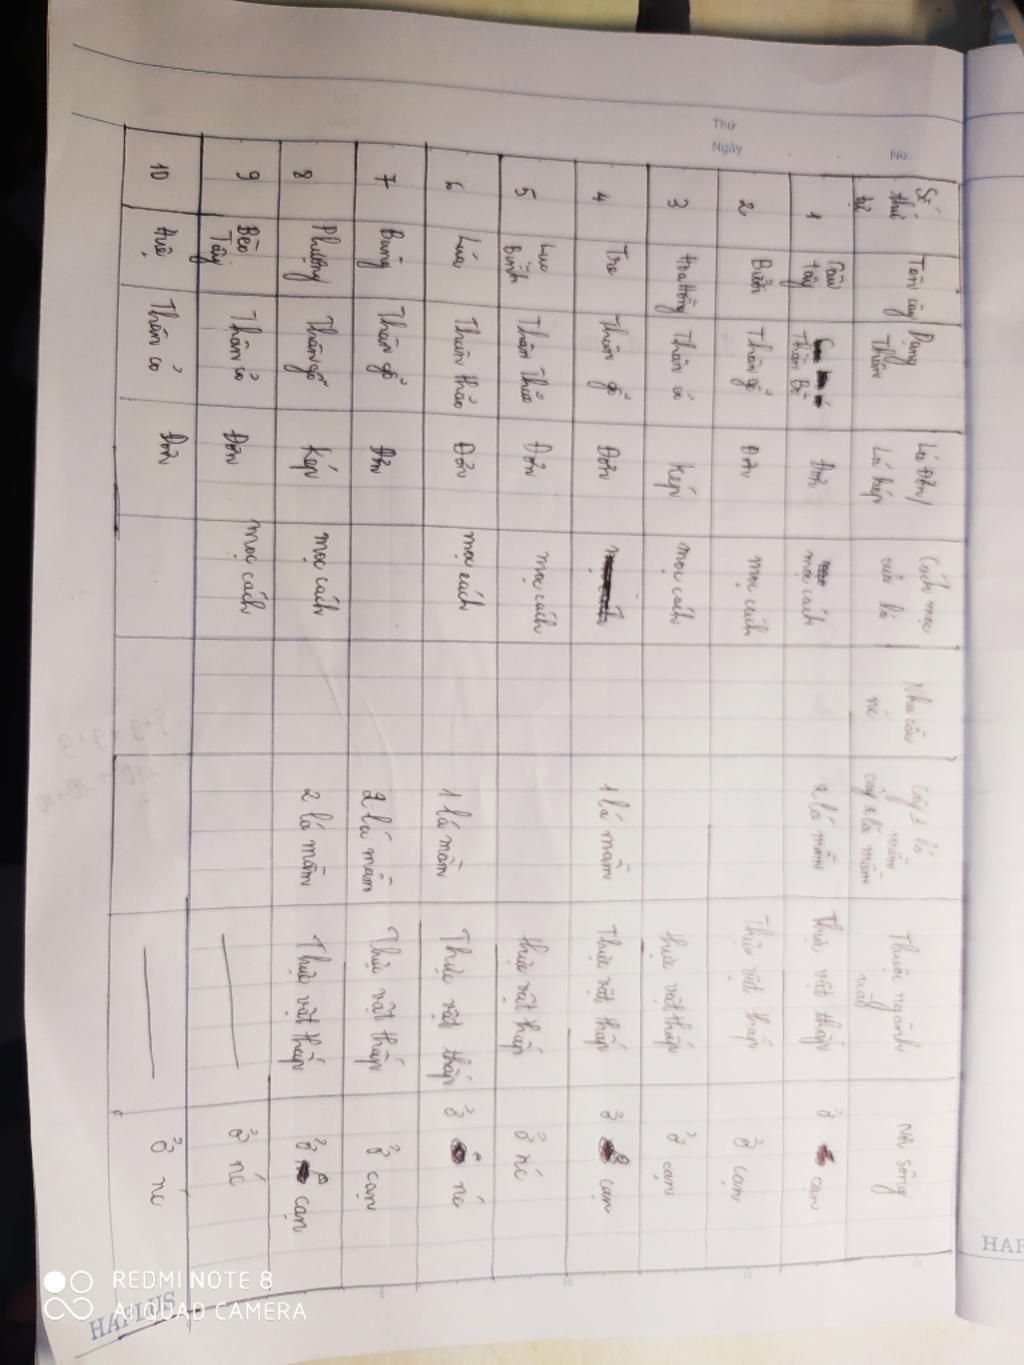 Thứ
Ngày
No.
Số thứ tự
Tên cây
Dạng Thân
Lá Đơn/ Lá kép
Cách mọc của lá
Nhu cầu nc
Cây 1 lá mầm cây 2 lá mầm
Thuộc ngành nào
Nơi sống
1 Dâu tây Thân Bò Đơn mọc cách 2 lá mầm Thực vật thấp ở cạn
2 Bưởi Thân gỗ Đơn mọc cách Thực vật thấp ở cạn
3 Hoa Hồng Thân cỏ Kép mọc cách thực vật thấp ở cạn
4 Tre Thân gỗ Đơn 1 lá mầm Thực vật thấp ở cạn
5 Lục Bình Thân Thảo Đơn mọc cách thực vật thấp ở nc
6 Lúa Thân thảo Đơn mọc cách 1 lá mầm Thực vật thấp ở nc
7 Bàng Thân gỗ Đơn 2 lá mầm Thực vật thấp ở cạn
8 Phượng Thân gỗ Kép mọc cách 2 lá mầm Thực vật thấp ở cạn
9 Bèo Tây Thân cỏ Đơn mọc cách ở nc
10 Huệ Thân cỏ Đơn ở nc
HAPLUS
REDMI NOTE 8
AI QUAD CAMERA